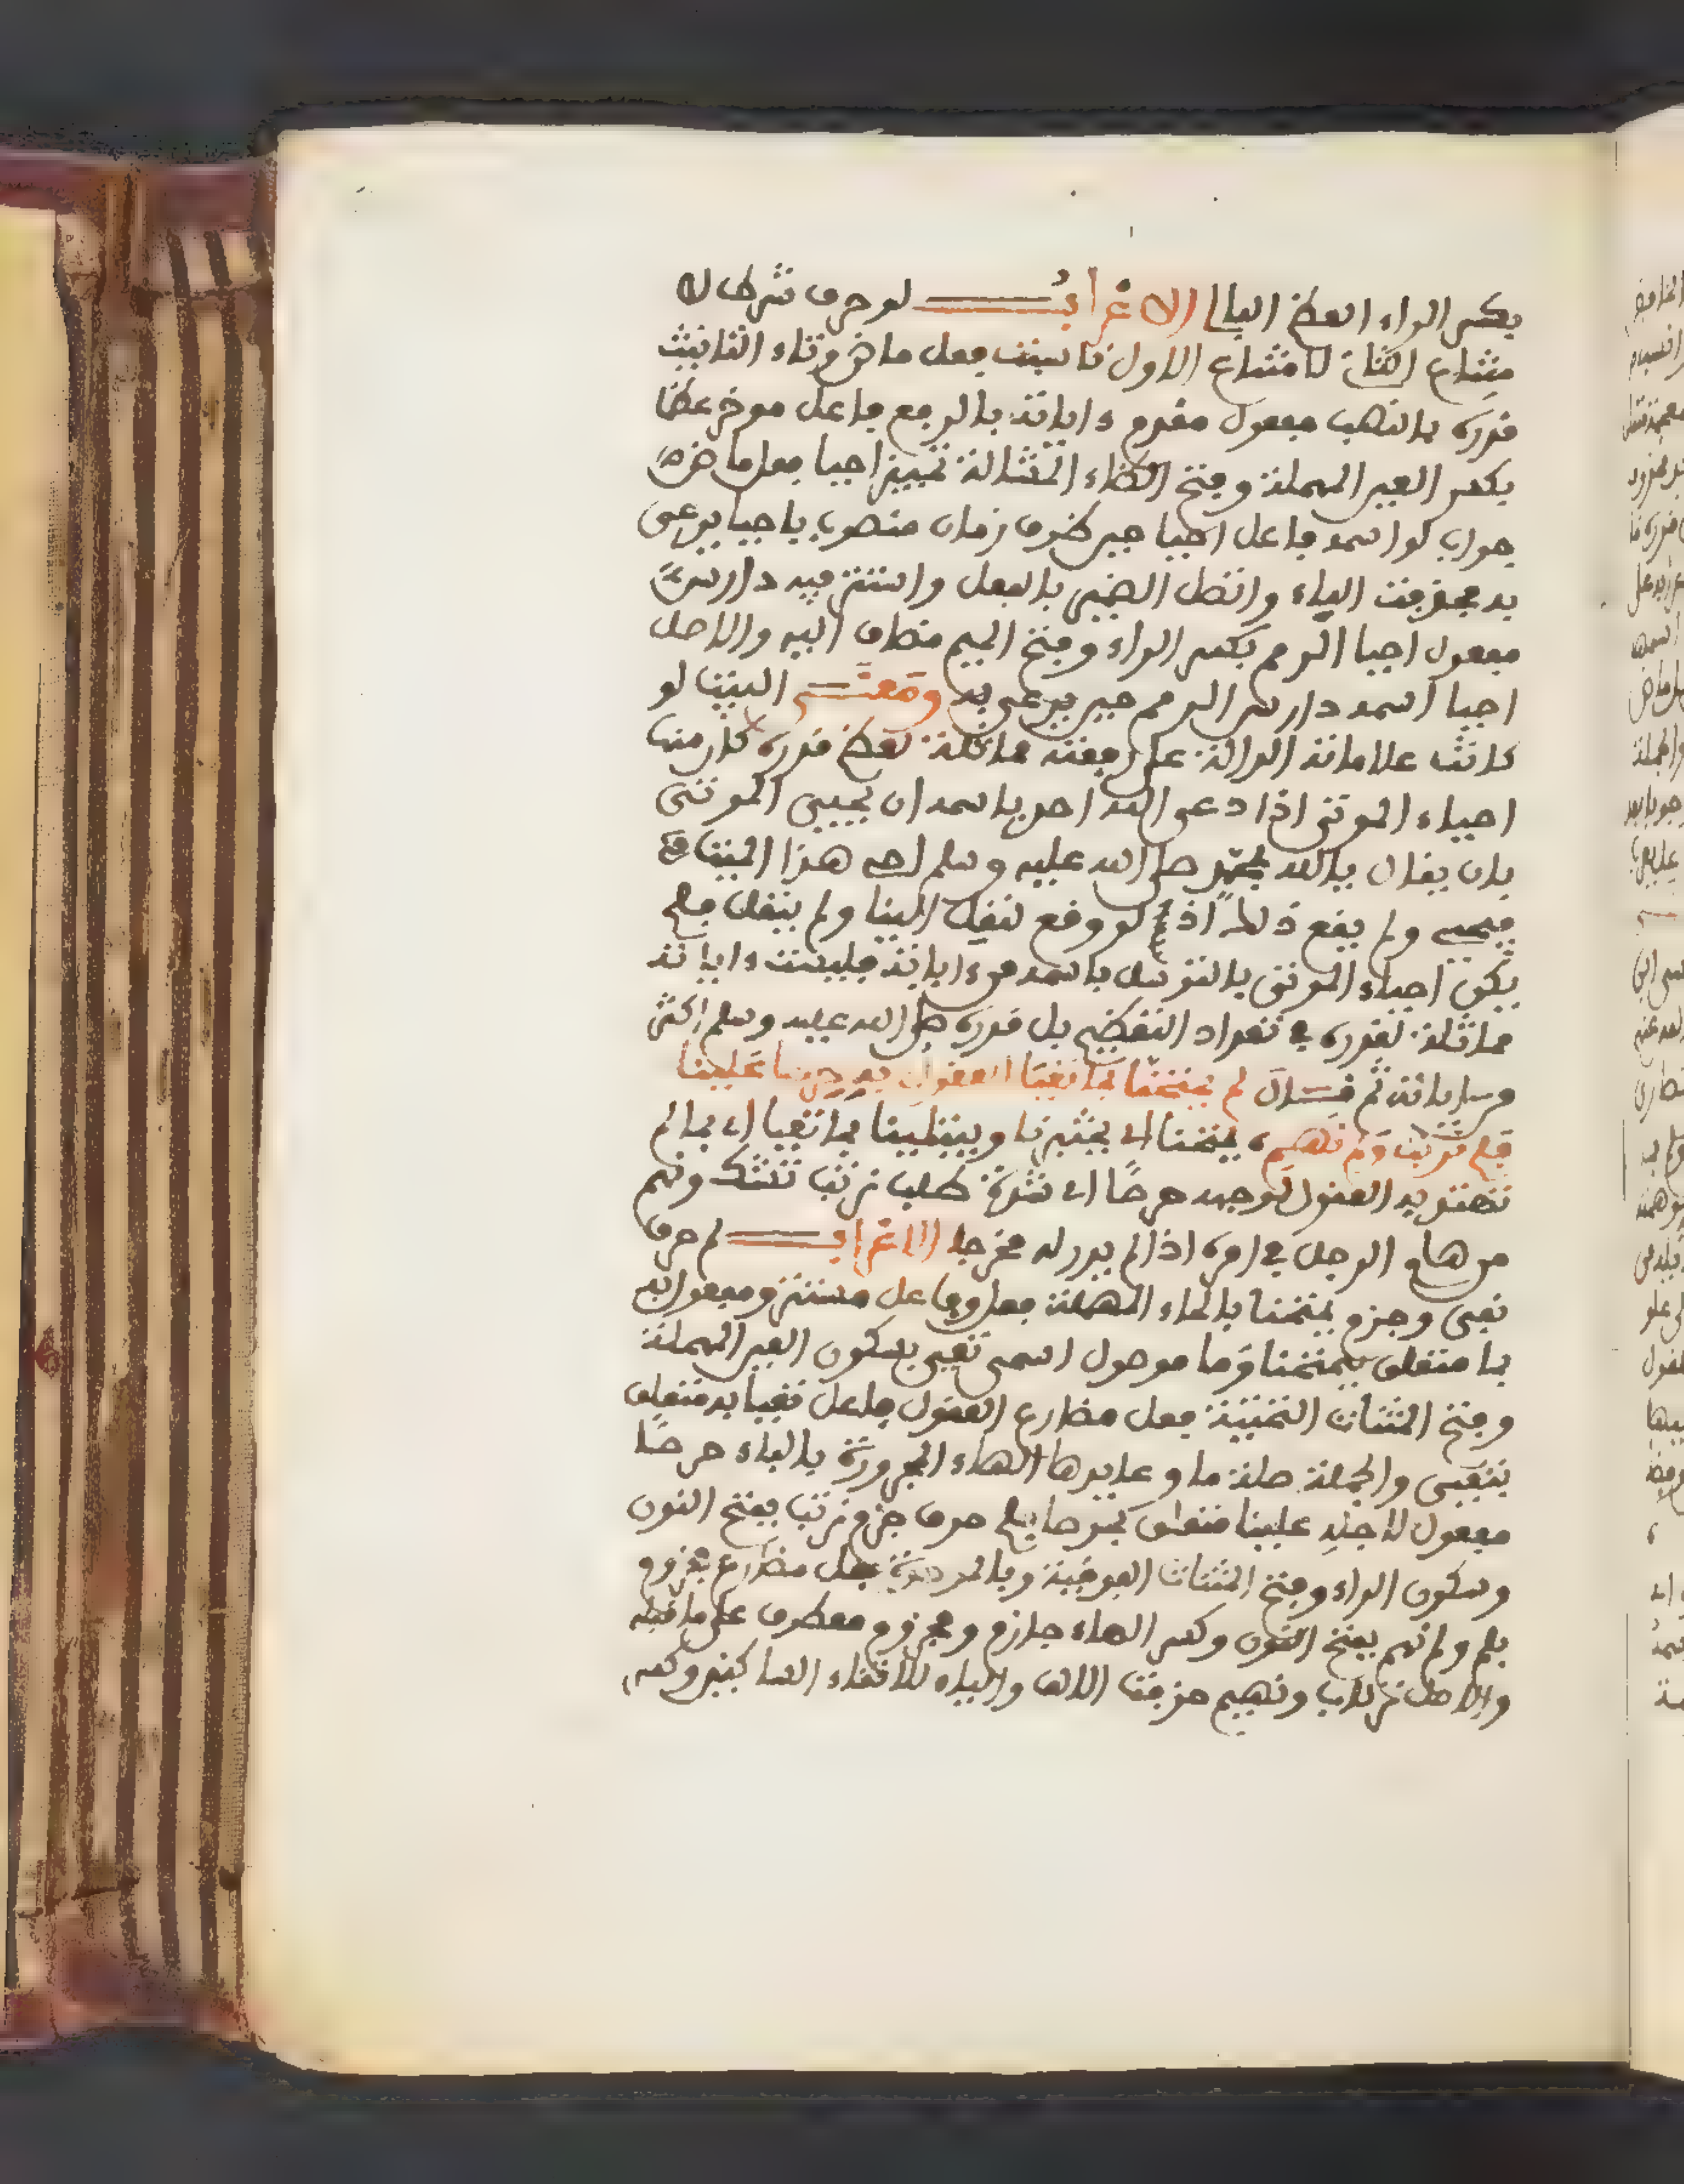 بكسر الراء العظم البالي الاعراب لو حرف شرط لا
متناع الثاني لامتناع الاول ناسبت فعل ماض وتاء التانيث
قدره بالنصب مفعول مقدم ءاياته بالرفع فاعل موخر عظما
بكسر العين المهملة وفتح الظاء المشالة تمييز احيا فعل ماض
جواب لو اسمه فاعل احيا حين ظرف زمان منصوب باحيا يدعى
به فحذفت الباء واتصل الضمير بالفعل واستتر فيه دارس
مفعول احيا الرمم بكسر الراء وفتح الميم مضاف اليه والاصل
احيا اسمه دارس الرمم حين يدعى به ومعنى البيت لو
كانت علاماته الدالة على رفعته مماثلة لعظم قدره كان منها
احياء الموتى اذا دعى الله احد باسمه ان يحيي الموتى
بان يقال يالله بمحمد صلى الله عليه وسلم احي هذا الميت
فيحيى ولم يقع ذلك اذ لو وقع لنقل الينا ولم ينقل فلم
يكن احياء الموتى بالتوسل باسمه من ءاياته فليست ءاياته
مماثلة لقدره في تعداد التعظيم بل قدره صلى الله عليه وسلم اكثر
من ساير ءاياته ثم قال لم يمتحنا بما تعيا العقول به حرصا علينا
فلم نرتب ولم نهم يمتحنا اي يختبرنا ويبتلينا بما تعيا اي بما لم
تهتد به العقول لوجهه حرصا اي شدة طلب نرتب نشك ونهم
من هام الرجل في امره اذا لم يدر له مخرجا الاعراب لم حرف
نفي وجزم يمتحنا بالحاء المهملة فعل وفاعل مستتر ومفعول به
بما متعلق بيمتحنا وما موصول اسمي تعيى بسكون العين المهملة
وفتح المثنات التحتية فعل مضارع العقول فاعل تعيا به متعلق
بتعيى والجملة صلة ما وعايدها الهاء المجرورة بالباء حرصا
مفعول لاجله علينا متعلق بحرصا فلم حرف جزم نرتب بفتح النون
وسكون الراء وفتح المثنات الفوقية وبالموحدة فعل مضارع مجزوم
بلم ولم نهم بفتح النون وكسر الهاء جازم ومجزوم معطوف على ما قبله
والاصل نرتاب ونهيم حذفت الالف والياء لالتقاء الساكنين وكسر